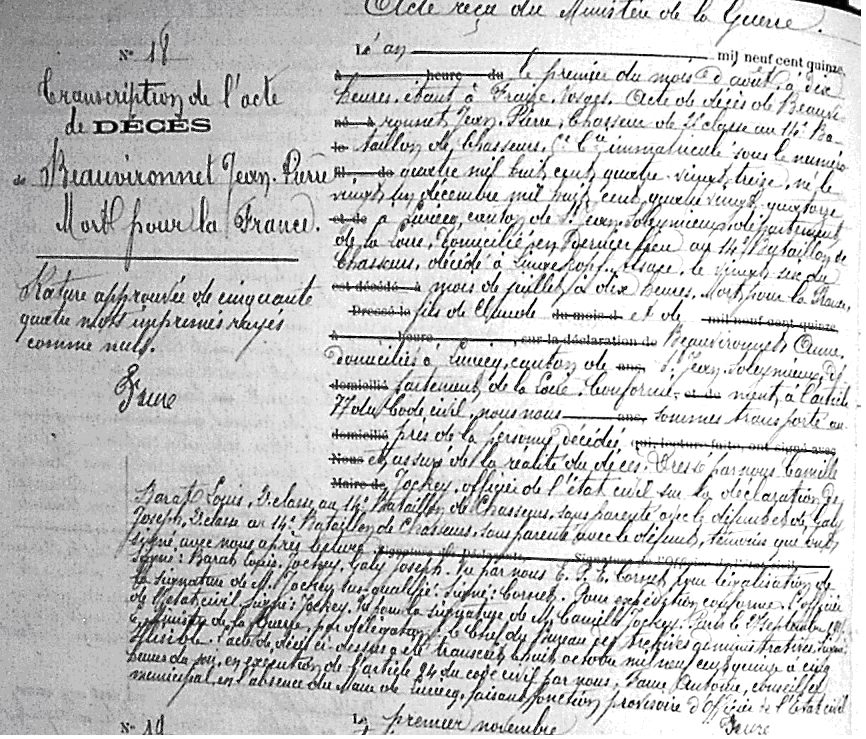 Acte reçu du Ministère de la Guerre.
N° 18
Transcription de l'acte
de DÉCÈS
de Beauvironnet Jean Pierre
Mort pour la France.
Rature approuvée de cinquante
quatre mots imprimés rayés
comme nuls.
Faure
L'an mil neuf cent quinze,
à heure du le premier du mois d'août, à dix
heures, étant à Fraize, Vosges. Acte de décès de Beauvi-
né à ronnet, Jean, Pierre, Chasseur de 2e classe au 14e Ba-
le taillon de Chasseurs, immatriculé sous le numéro
fil de quatre mil huit cent quatre vingt treize, né le
vingt un décembre mil huit cent quatre vingt quatorze
et de à Luriecq, canton de St Jean Soleymieux, département
de la Loire, domicilié en dernier lieu au 14e Bataillon de
Chasseurs, décédé à Alsace, le vingt six du
est décédé à mois de juillet à dix heures. Mort pour la France,
Dressé le fils de Claude du mois d et de mil neuf cent quinze
à heure, sur la déclaration de Beauvironnet, Anne,
domiciliés à Luriecq, canton de ans, St Jean Soleymieux, dé
domicilié partement de la Loire. Conformé- et de ment, à l'article
77 du Code civil, nous nous ans, sommes transporté au-
domicilié près de la personne décédée qui, lecture faite, ont signé avec
Nous et assuré de la réalité du décès. Dressé par nous Camille
Maire de Jockey, officier de l'état civil sur la déclaration de
Barat Louis, 2e classe au 14e Bataillon de Chasseurs, sans parenté avec le défunt et de Galy
Joseph, 2e classe au 14e Bataillon de Chasseurs, sans parenté avec le défunt, témoins que ont
signé avec nous après lecture. Signature Signature de l'Officier de l'état civil,
Signé: Barat Louis, Jockey, Galy Joseph. Vu par nous Cornet pour légalisation de
la signature de M. Jockey sus-qualifié. Signé: Cornet. Pour expédition conforme. l'officier
de l'état civil. Signé: Jockey. Vu pour la signature de M. Camille Jockey. Paris le 27 septembre
de la Guerre, par délégation, le Chef du bureau des Archives administratives. Signé:
illisible. l'acte de décès ci-dessus a été transcrit le huit octobre mil neuf cent quinze à cinq
heures du soir, en exécution de l'article 94 du code civil par nous, Faure Antoine, conseiller
municipal, en l'absence du Maire de Luriecq, faisant fonction provisoire d'Officier de l'état civil
Faure
N° 19
Le premier novembre